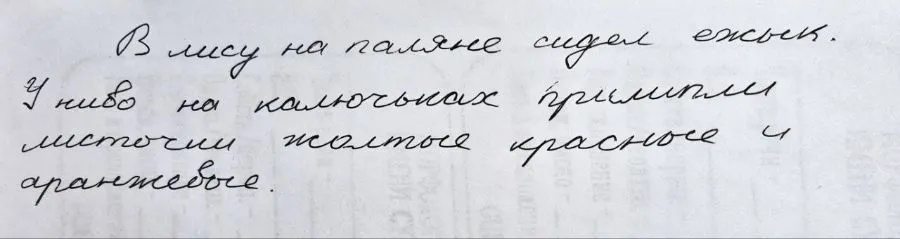 В лису на паляне сидел ежык.
У ниво на калючьках прилипли
листочии жолтые красные и
аранжевые.